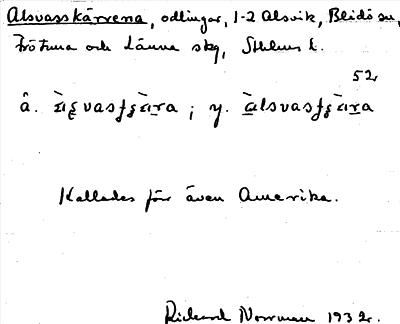 Alsvasskärrena, odlingar, 1-2 Alsvik, Blidö sn,
Frötuna och Länna skg, Sthlms l.
52
å.
; y.
Kallades för även Amerika.
Rickard Norrman 1932.